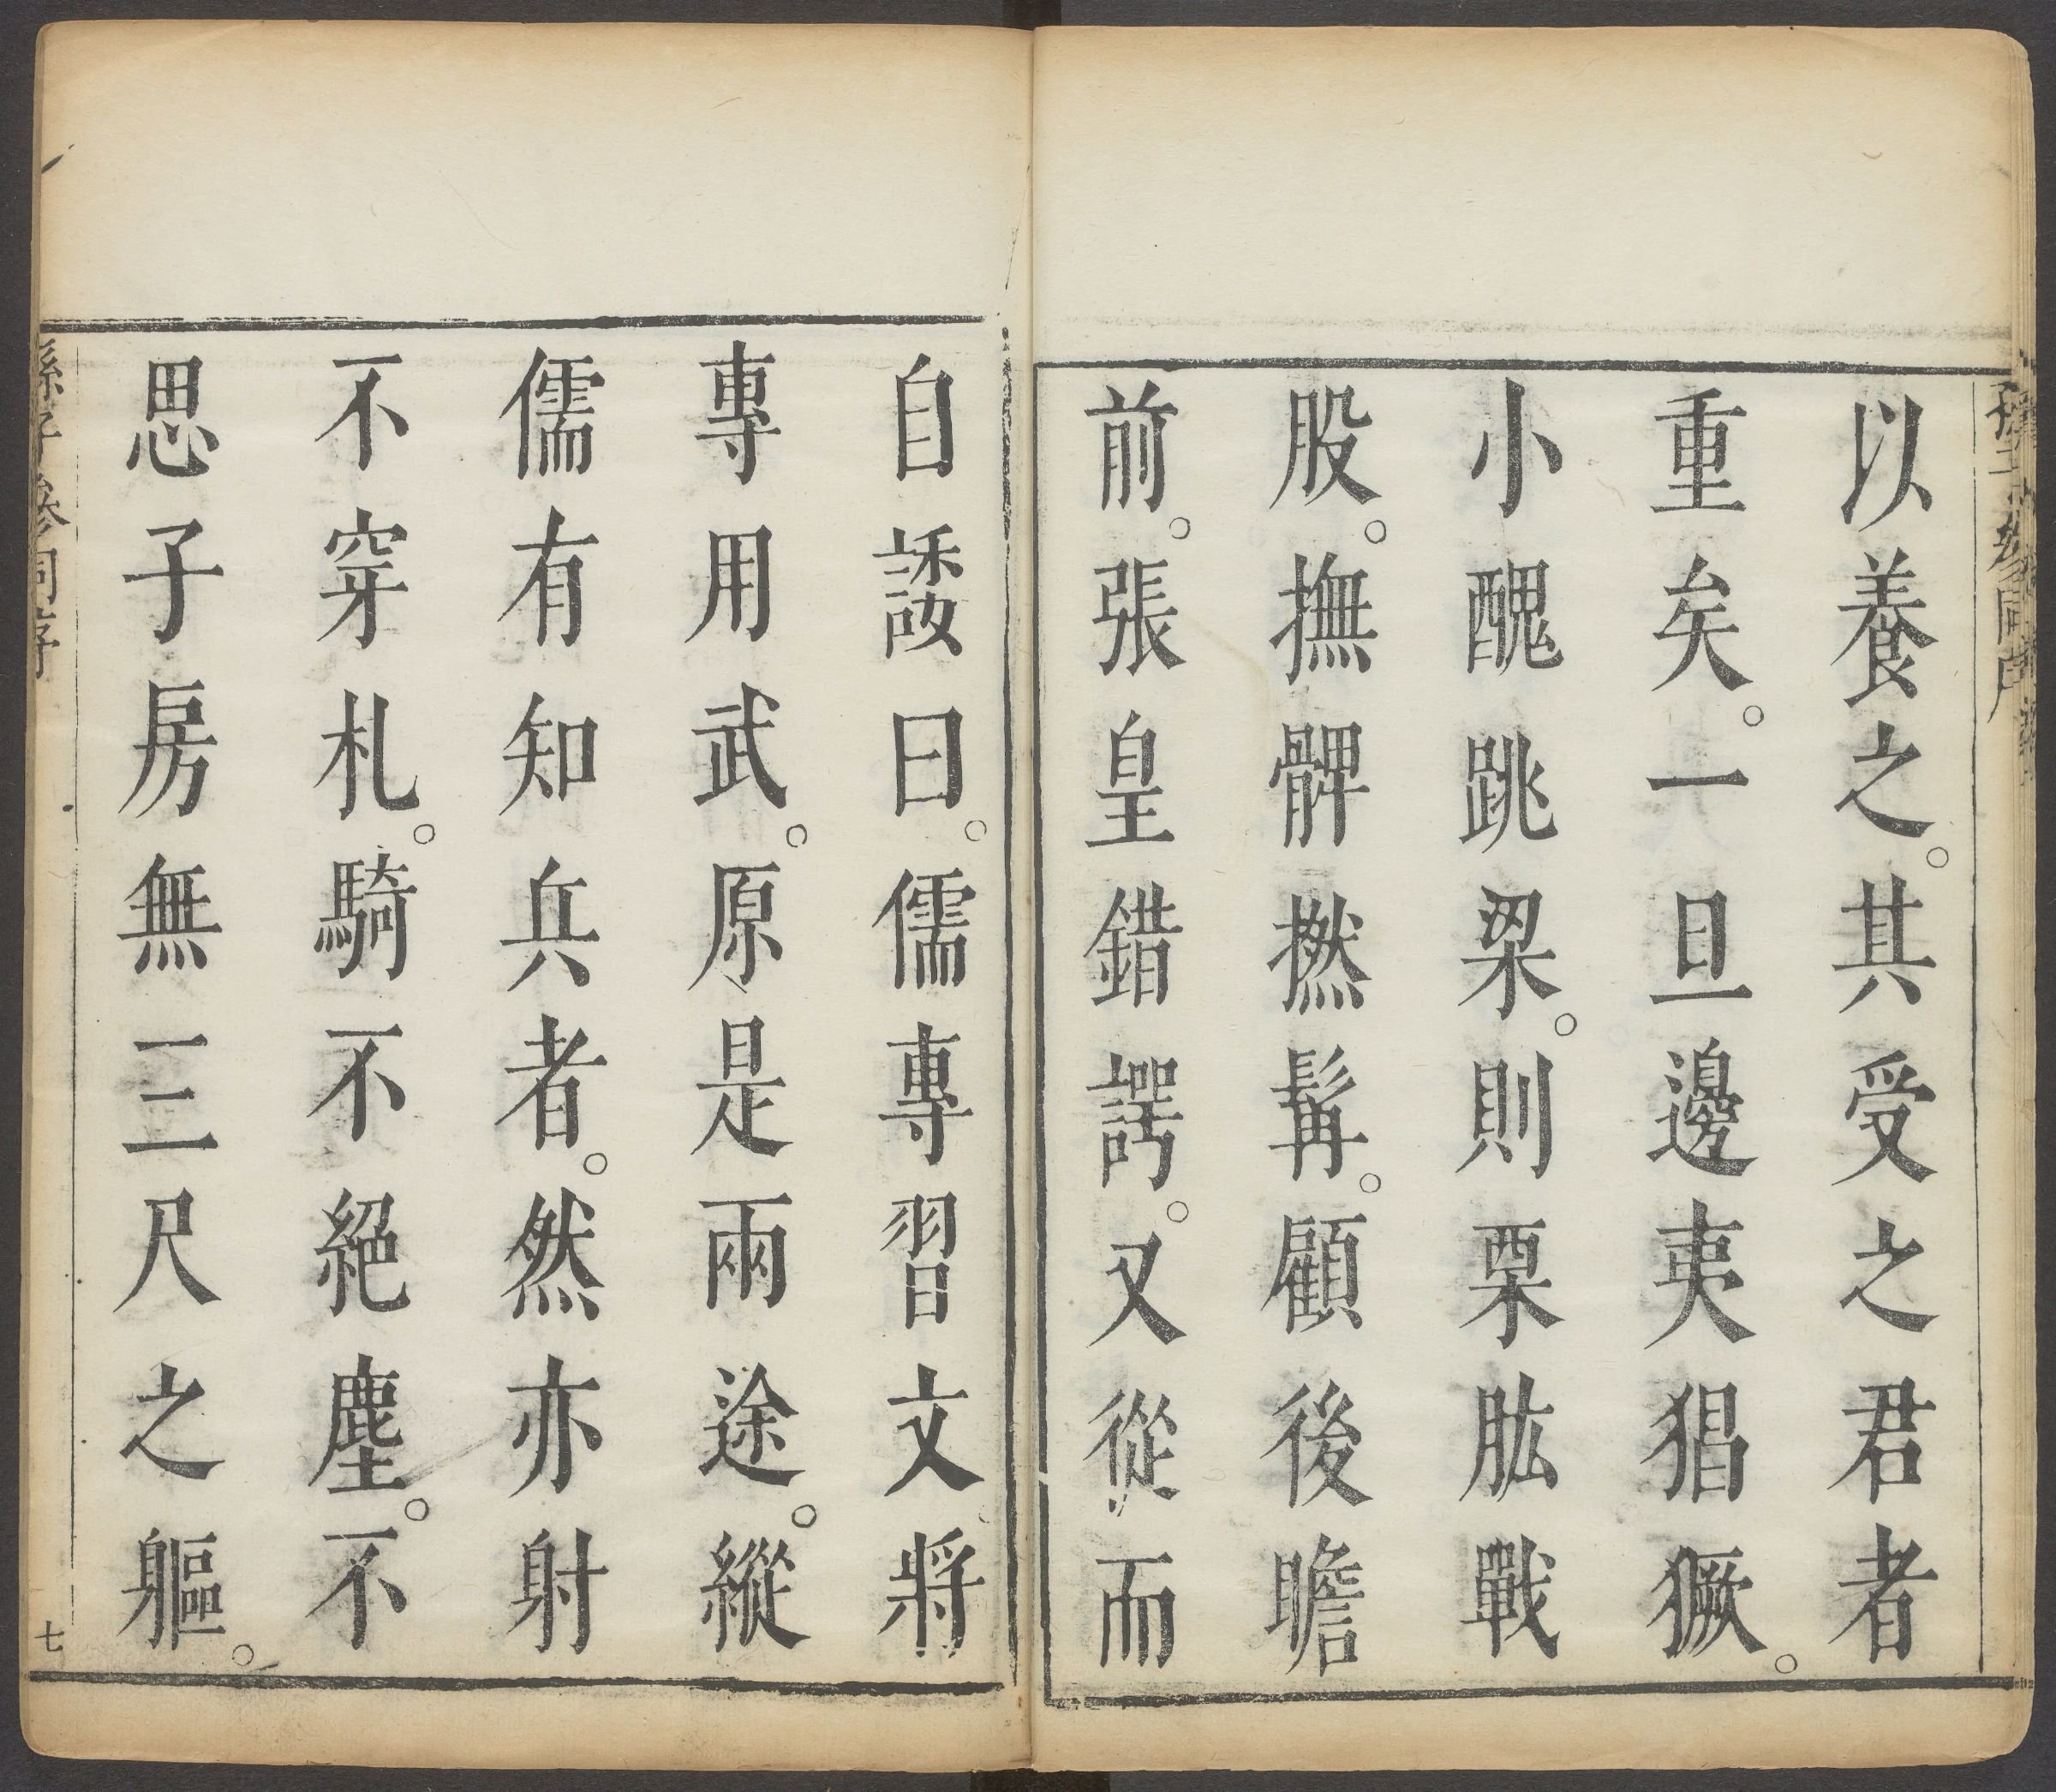 以養之。其受之君者
重矣。一旦邊夷猖獗。
小醜跳梁。則栗肱戰
股。撫髀撚髯。顧後瞻
前。張皇錯諤。又從而
自諉曰。儒專習文將
專用武。原是兩途。縱
儒有知兵者。然亦射
不穿札。騎不絕塵。不
思子房無三尺之軀。
孫子參同序
七